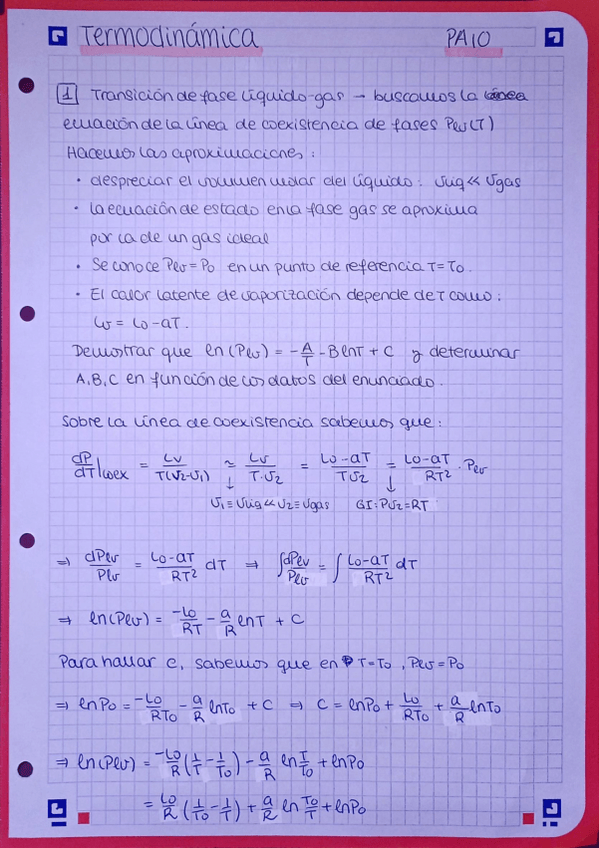 Termodinámica PA10
1 Transición de fase líquido-gas → buscamos la
ecuación de la línea de coexistencia de fases Plv(T)
Hacemos las aproximaciones:
· despreciar el volumen molar del líquido: vliq << vgas
· la ecuación de estado en la fase gas se aproxima
por la de un gas ideal
· Se conoce Plv = P0 en un punto de referencia T = T0.
· El calor latente de vaporización depende de T como:
lv = l0 - aT.
Demostrar que ln(Plv) = -A/T - B lnT + C y determinar
A, B, C en función de los datos del enunciado.
Sobre la línea de coexistencia sabemos que:
dP/dT|coex = lv/T(v2-v1) ≃ lv/T·v2 = l0-aT/Tv2 = l0-aT/RT² · Plv
↓ ↓
v1 ≡ vliq << v2 ≡ vgas GI: Pv2 = RT
⇒ dPlv/Plv = l0-aT/RT² dT ⇒ ∫dPlv/Plv = ∫ l0-aT/RT² dT
⇒ ln(Plv) = -l0/RT - a/R lnT + C
Para hallar C, sabemos que en T = T0, Plv = P0
⇒ lnP0 = -l0/RT0 - a/R lnT0 + C ⇒ C = lnP0 + l0/RT0 + a/R lnT0
⇒ ln(Plv) = -l0/R (1/T - 1/T0) - a/R ln T/T0 + lnP0
= l0/R (1/T0 - 1/T) + a/R ln T0/T + lnP0